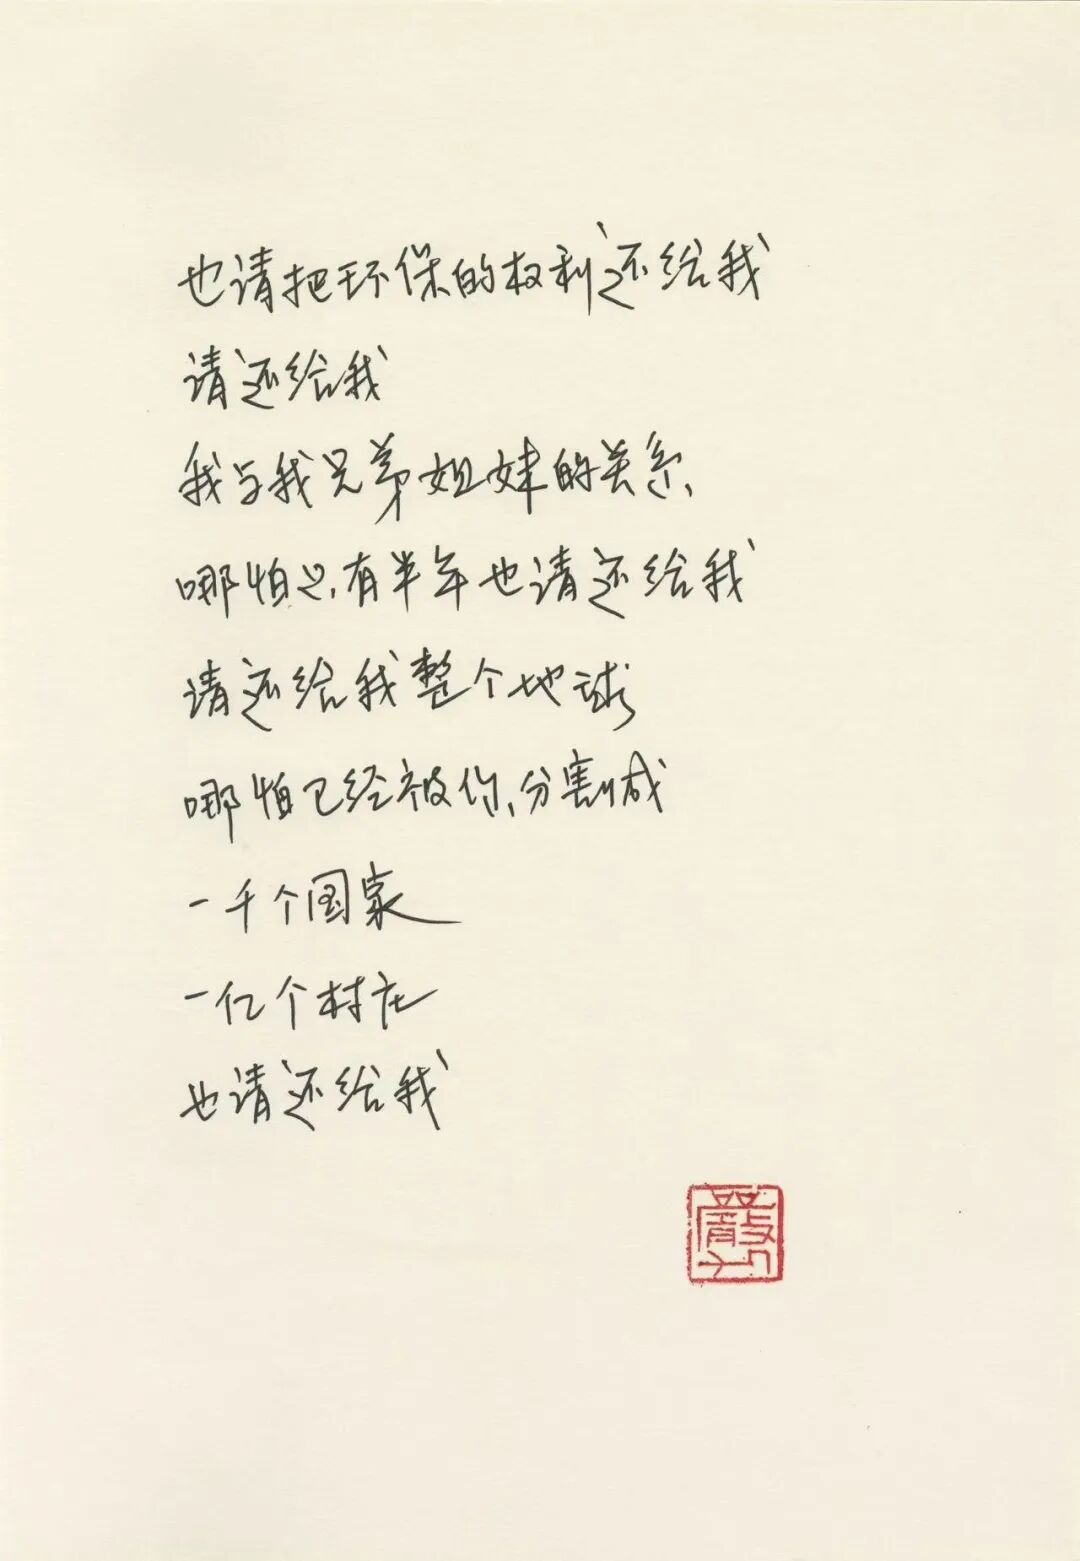 也请把环保的权利还给我
请还给我
我与我兄弟姐妹的关系
哪怕只有半年也请还给我
请还给我整个地球
哪怕已经被你分割成
一千个国家
一亿个村庄
也请还给我
嚴力